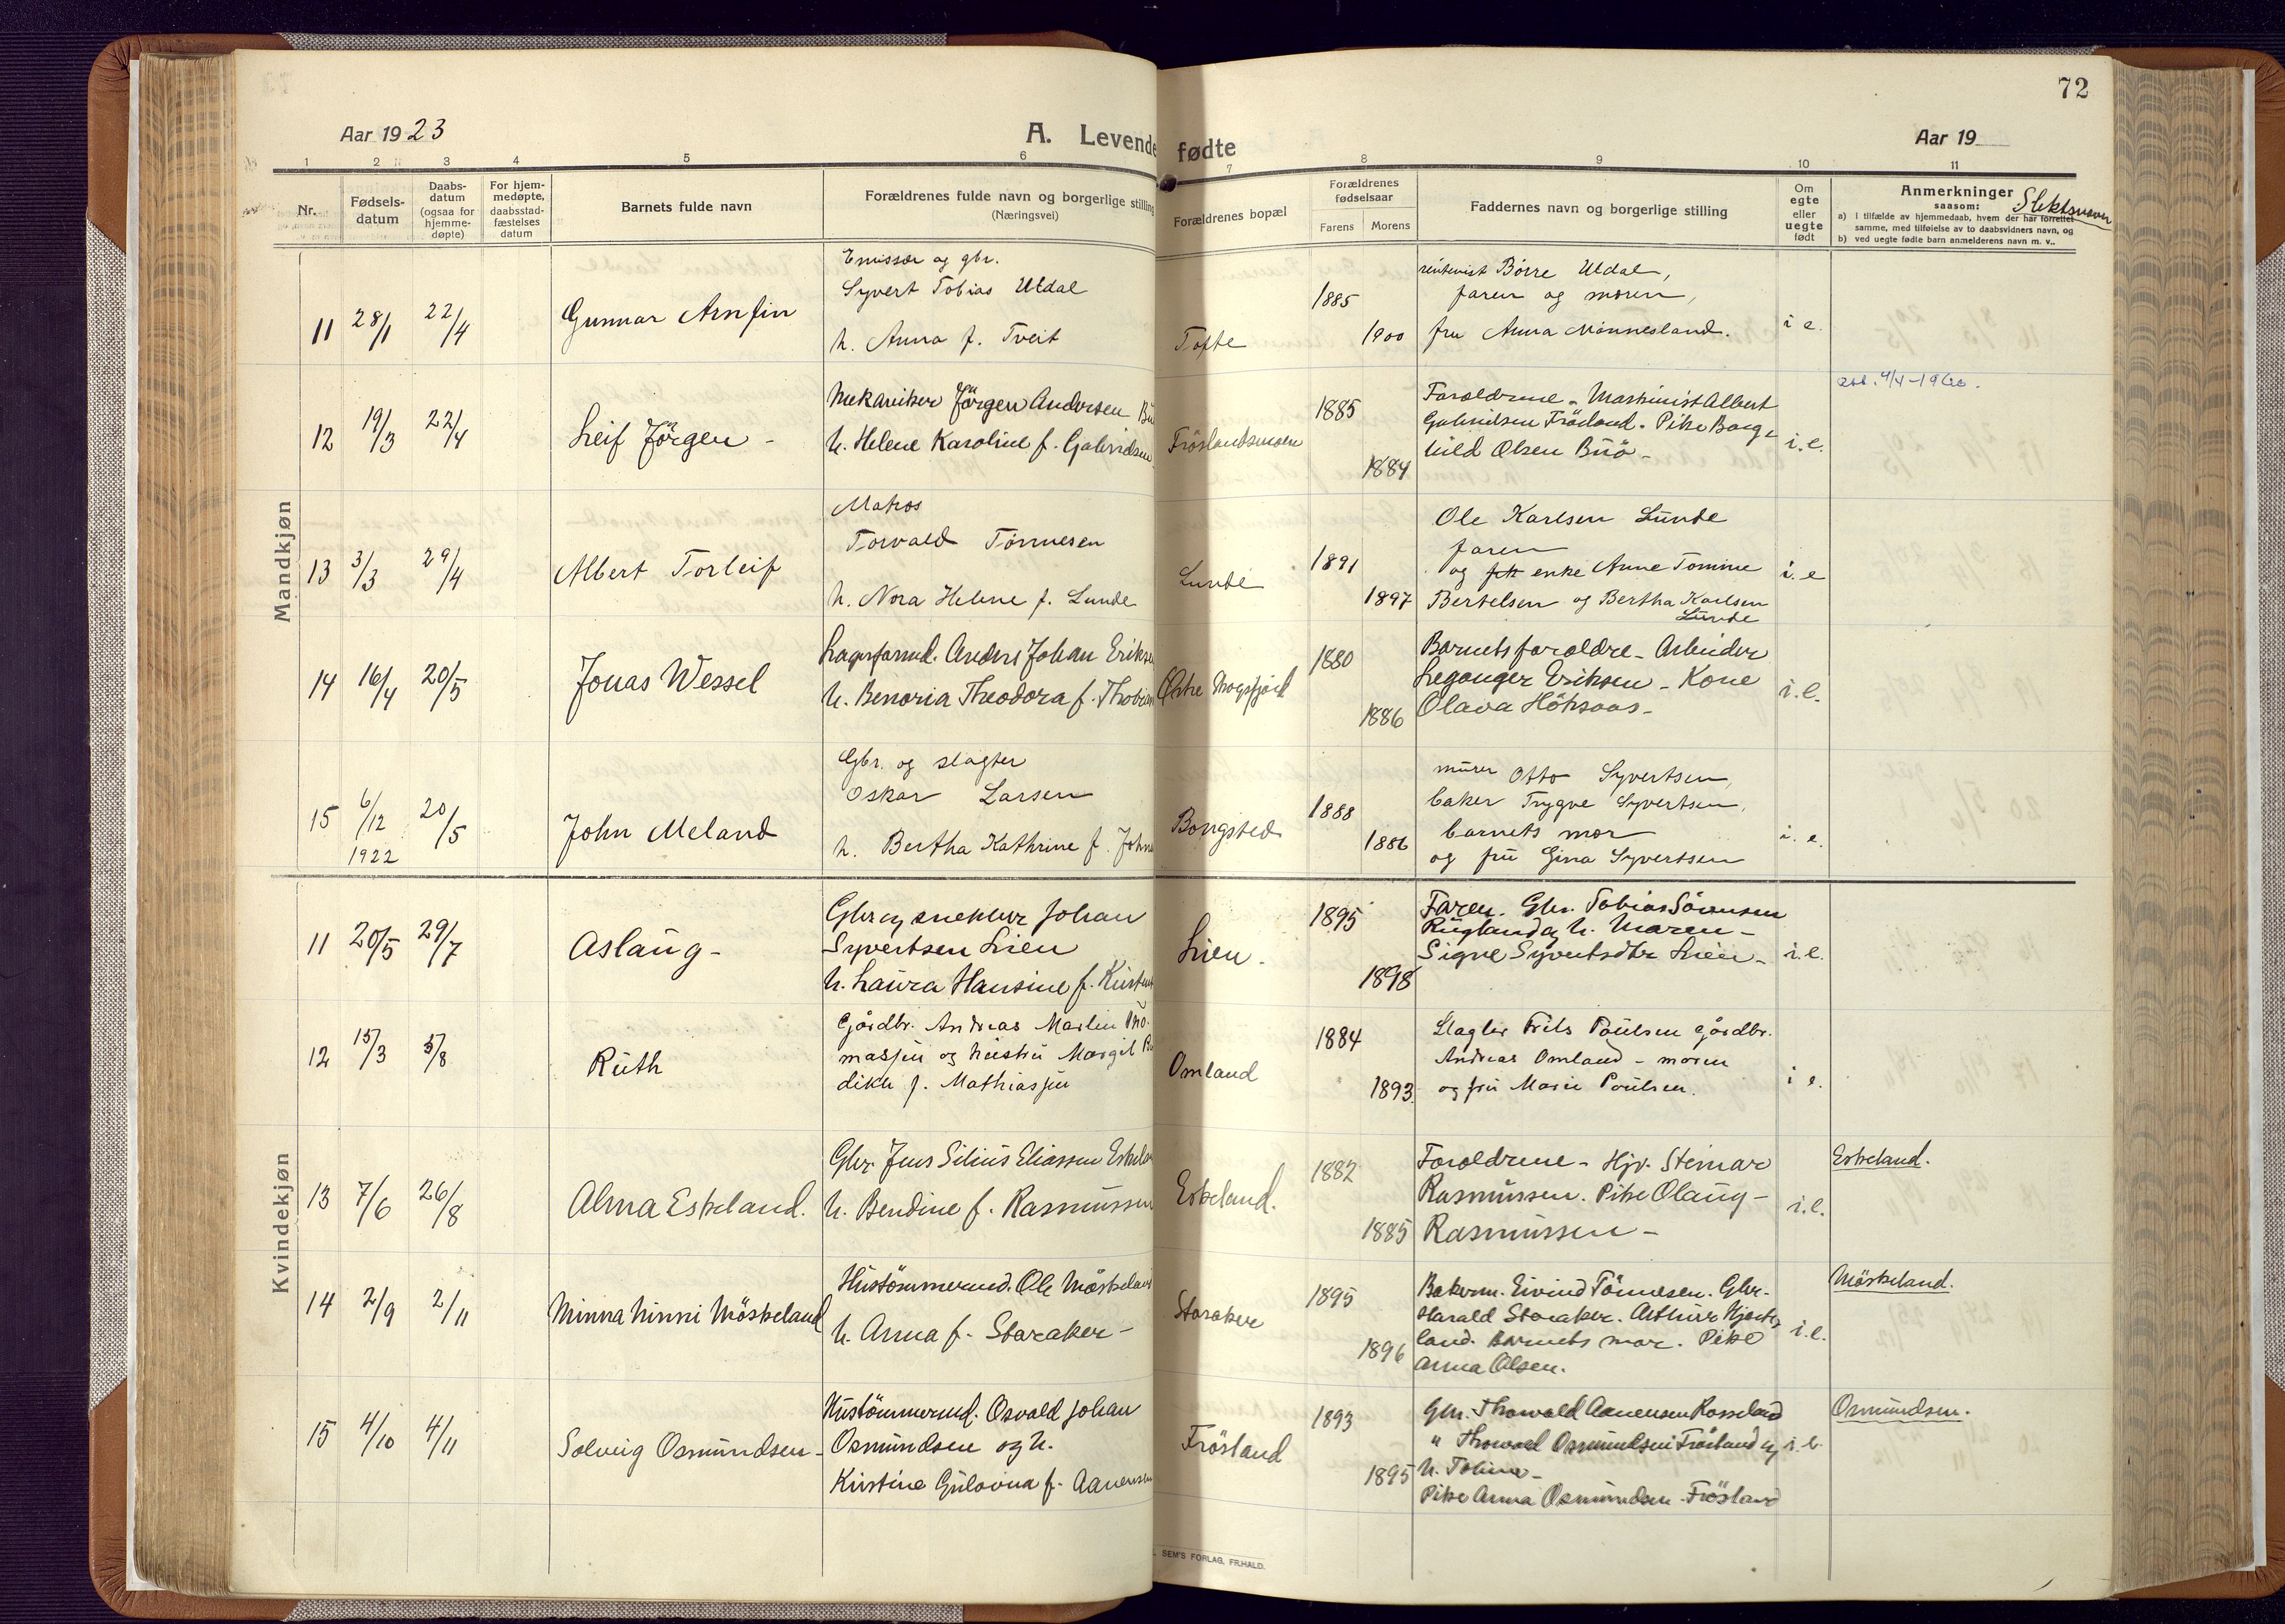 72
Aar 1923
A. Levende fødte
Aar 19
1 2 3 4 5 6 7 8 9 10 11
Nr.
Fødsels-
datum
Daabs-
datum
(ogsaa for
hjemme-
døpte)
For hjem-
medøpte,
daabsstad-
fæstelses
datum
Barnets fulde navn
Forældrenes fulde navn og borgerlige stilling
(Næringsvei)
Forældrenes bopæl
Forældrenes
fødselsaar
Farens Morens
Faddernes navn og borgerlige stilling
Om
egte
eller
uegte
født
Anmerkninger
saasom:
a) i tilfælde av hjemmedaab, hvem der har forrettet
samme, med tilføielse av to daabsvidners navn, og
b) ved uegte fødte barn anmelderens navn m. v..
Slektsnavn
Mandkjøn
11 28/1 22/4 Gunnar Arnfin
Emissær og gbr.
Syvert Tobias Uldal
h. Anna f. Tveit
Tofte
1885
1900
rentenist Börre Uldal,
faren og moren,
fru Anna Mannesland.
i e.
12 19/3 22/4 Leif Jörgen -
Mekaniker Jörgen Andersen
h. Helene Karoline f. Gabrielsen
Fröslandsmoen
1885
1884
Foreldrene - Maskinist Albert
Gabrielsen Frösland - Pike Borg-
hild Olsen Buö -
i.e.
13 3/3 29/4 Albert Torleif
Matros
Torvald Tönnesen
h. Nora Helene f. Lunde
Lunde
1891
1897
Ole Karlsen Lunde
faren
og enke Anne Tomine
Bertelsen og Bertha Karlsen
Lunde
i. e
14 16/4 20/5 Jonas Wessel
Lagerformd. Anders Johan
h. Benoria Theodora f.
1880
1886
Barnets foreldre - Arbeider
Leganger Eriksen - Kone
Olava Höksaas -
i.e.
15 6/12 1922 20/5 John Meland
Gbr. og slagter
Oskar Larsen
h. Bertha Kathrine f.
Bongsted
1888
1886
murer Otto Syvertsen,
baker Trygve Syvertsen,
barnets mor
og fru Gina Syvertsen
i. e.
Kvindekjøn
11 20/5 29/7 Aslaug -
Gbr og snekker Johan
Syvertsen Lien
h. Laura Hansine f.
Lien -
1895
1898
Faren. Gbr. Tobias Sörensen
Rugland og h. Maren -
Signe Syvertsdtr Lien -
i.e.
12 15/3 5/8 Ruth
Gårdbr. Andreas Martin Tho-
masen og hustru Margit
dikte f. Mathiassen
Omland
1884
1893.
Slagter Frits Poulsen gårdbr.
Andreas Omland - moren
og fru Marie Poulsen.
i e.
13 7/6 26/8 Alma Eskeland.
Gbr. Jens Silius Eliassen
h. Bendine f. Rasmussen
Eskeland.
1882
1885
Foreldrene - Hjv. Steinar
Rasmussen. Pike Olaug -
Rasmussen -
i.e.
Eskeland.
14 2/9 2/11 Minna Ninni Möskeland
Hustömmermd. Ole Möskeland
h. Anna f. Staraker -
Staraker
1895
1896
Bakerm. Eivind Tönnesen. Gbr.
Harald Staraker. Arthur Hjorte-
land. Barnets mor. Pike
Anna Olsen.
i.e.
Möskeland.
15 4/10 4/11 Solveig Osmundsen -
Hustömmermd. Osvald Johan
Osmundsen og h.
Kristine Gulovna f. Aanensen
Frösland
1893
1895
Gbr. Thorvald Aanensen Rosseland
" Thorvald Osmundsen Frösland og
h. Tobine -
Pike Anna Osmundsen Frösland
i.e.
Osmundsen.
SEM'S FORLAG, FR.HALD.